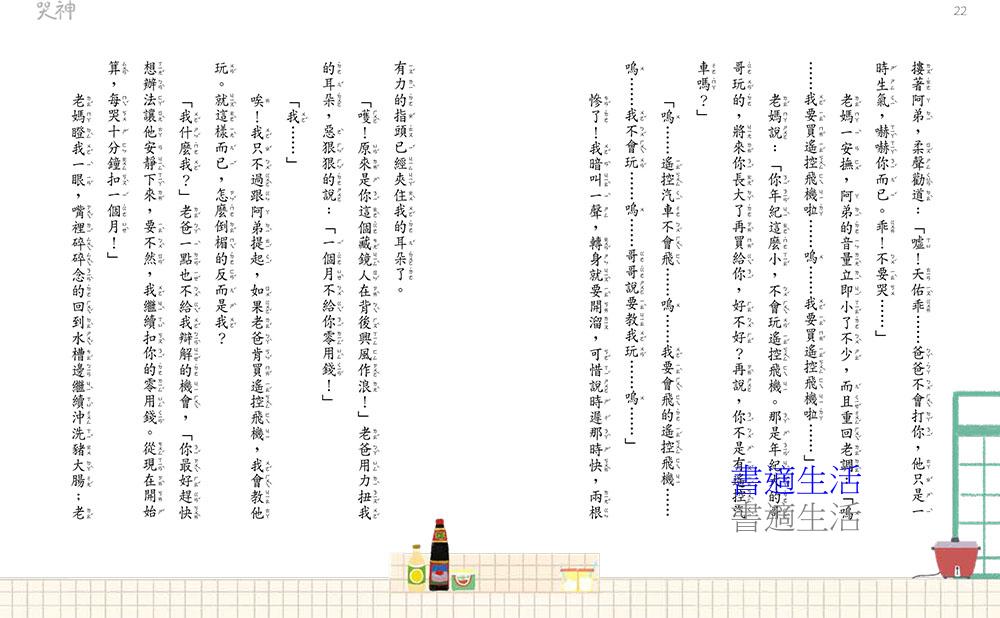 哭神
22
摟著阿弟，柔聲勸道：「噓！天佑乖……爸爸不會打你，他只是一
時生氣，嚇嚇你而已。乖！不要哭……」
老媽一安撫，阿弟的音量立即小了不少，而且重回老調：「嗚
……我要買遙控飛機啦……嗚……我要買遙控飛機啦……」
老媽說：「你年紀這麼小，不會玩遙控飛機。那是年紀大的哥
哥玩的，將來你長大了再買給你，好不好？再說，你不是有遙控汽
車嗎？」
「嗚……遙控汽車不會飛……嗚……我要會飛的遙控飛機……
嗚……我不會玩……嗚……哥哥說要教我玩……嗚……」
慘了！我暗叫一聲，轉身就要開溜，可惜說時遲那時快，兩根
有力的指頭已經夾住我的耳朵了。
「嚄！原來是你這個藏鏡人在背後興風作浪！」老爸用力扭我
的耳朵，惡狠狠的說：「一個月不給你零用錢！」
「我……」
唉！我只不過跟阿弟提起，如果老爸肯買遙控飛機，我會教他
玩。就這樣而已，怎麼倒楣的反而是我？
「我什麼我？」老爸一點也不給我辯解的機會，「你最好趕快
想辦法讓他安靜下來，要不然，我繼續扣你的零用錢。從現在開始
算，每哭十分鐘扣一個月！」
老媽瞪我一眼，嘴裡碎碎念的回到水槽邊繼續沖洗豬大腸：老
書適生活
書適生活